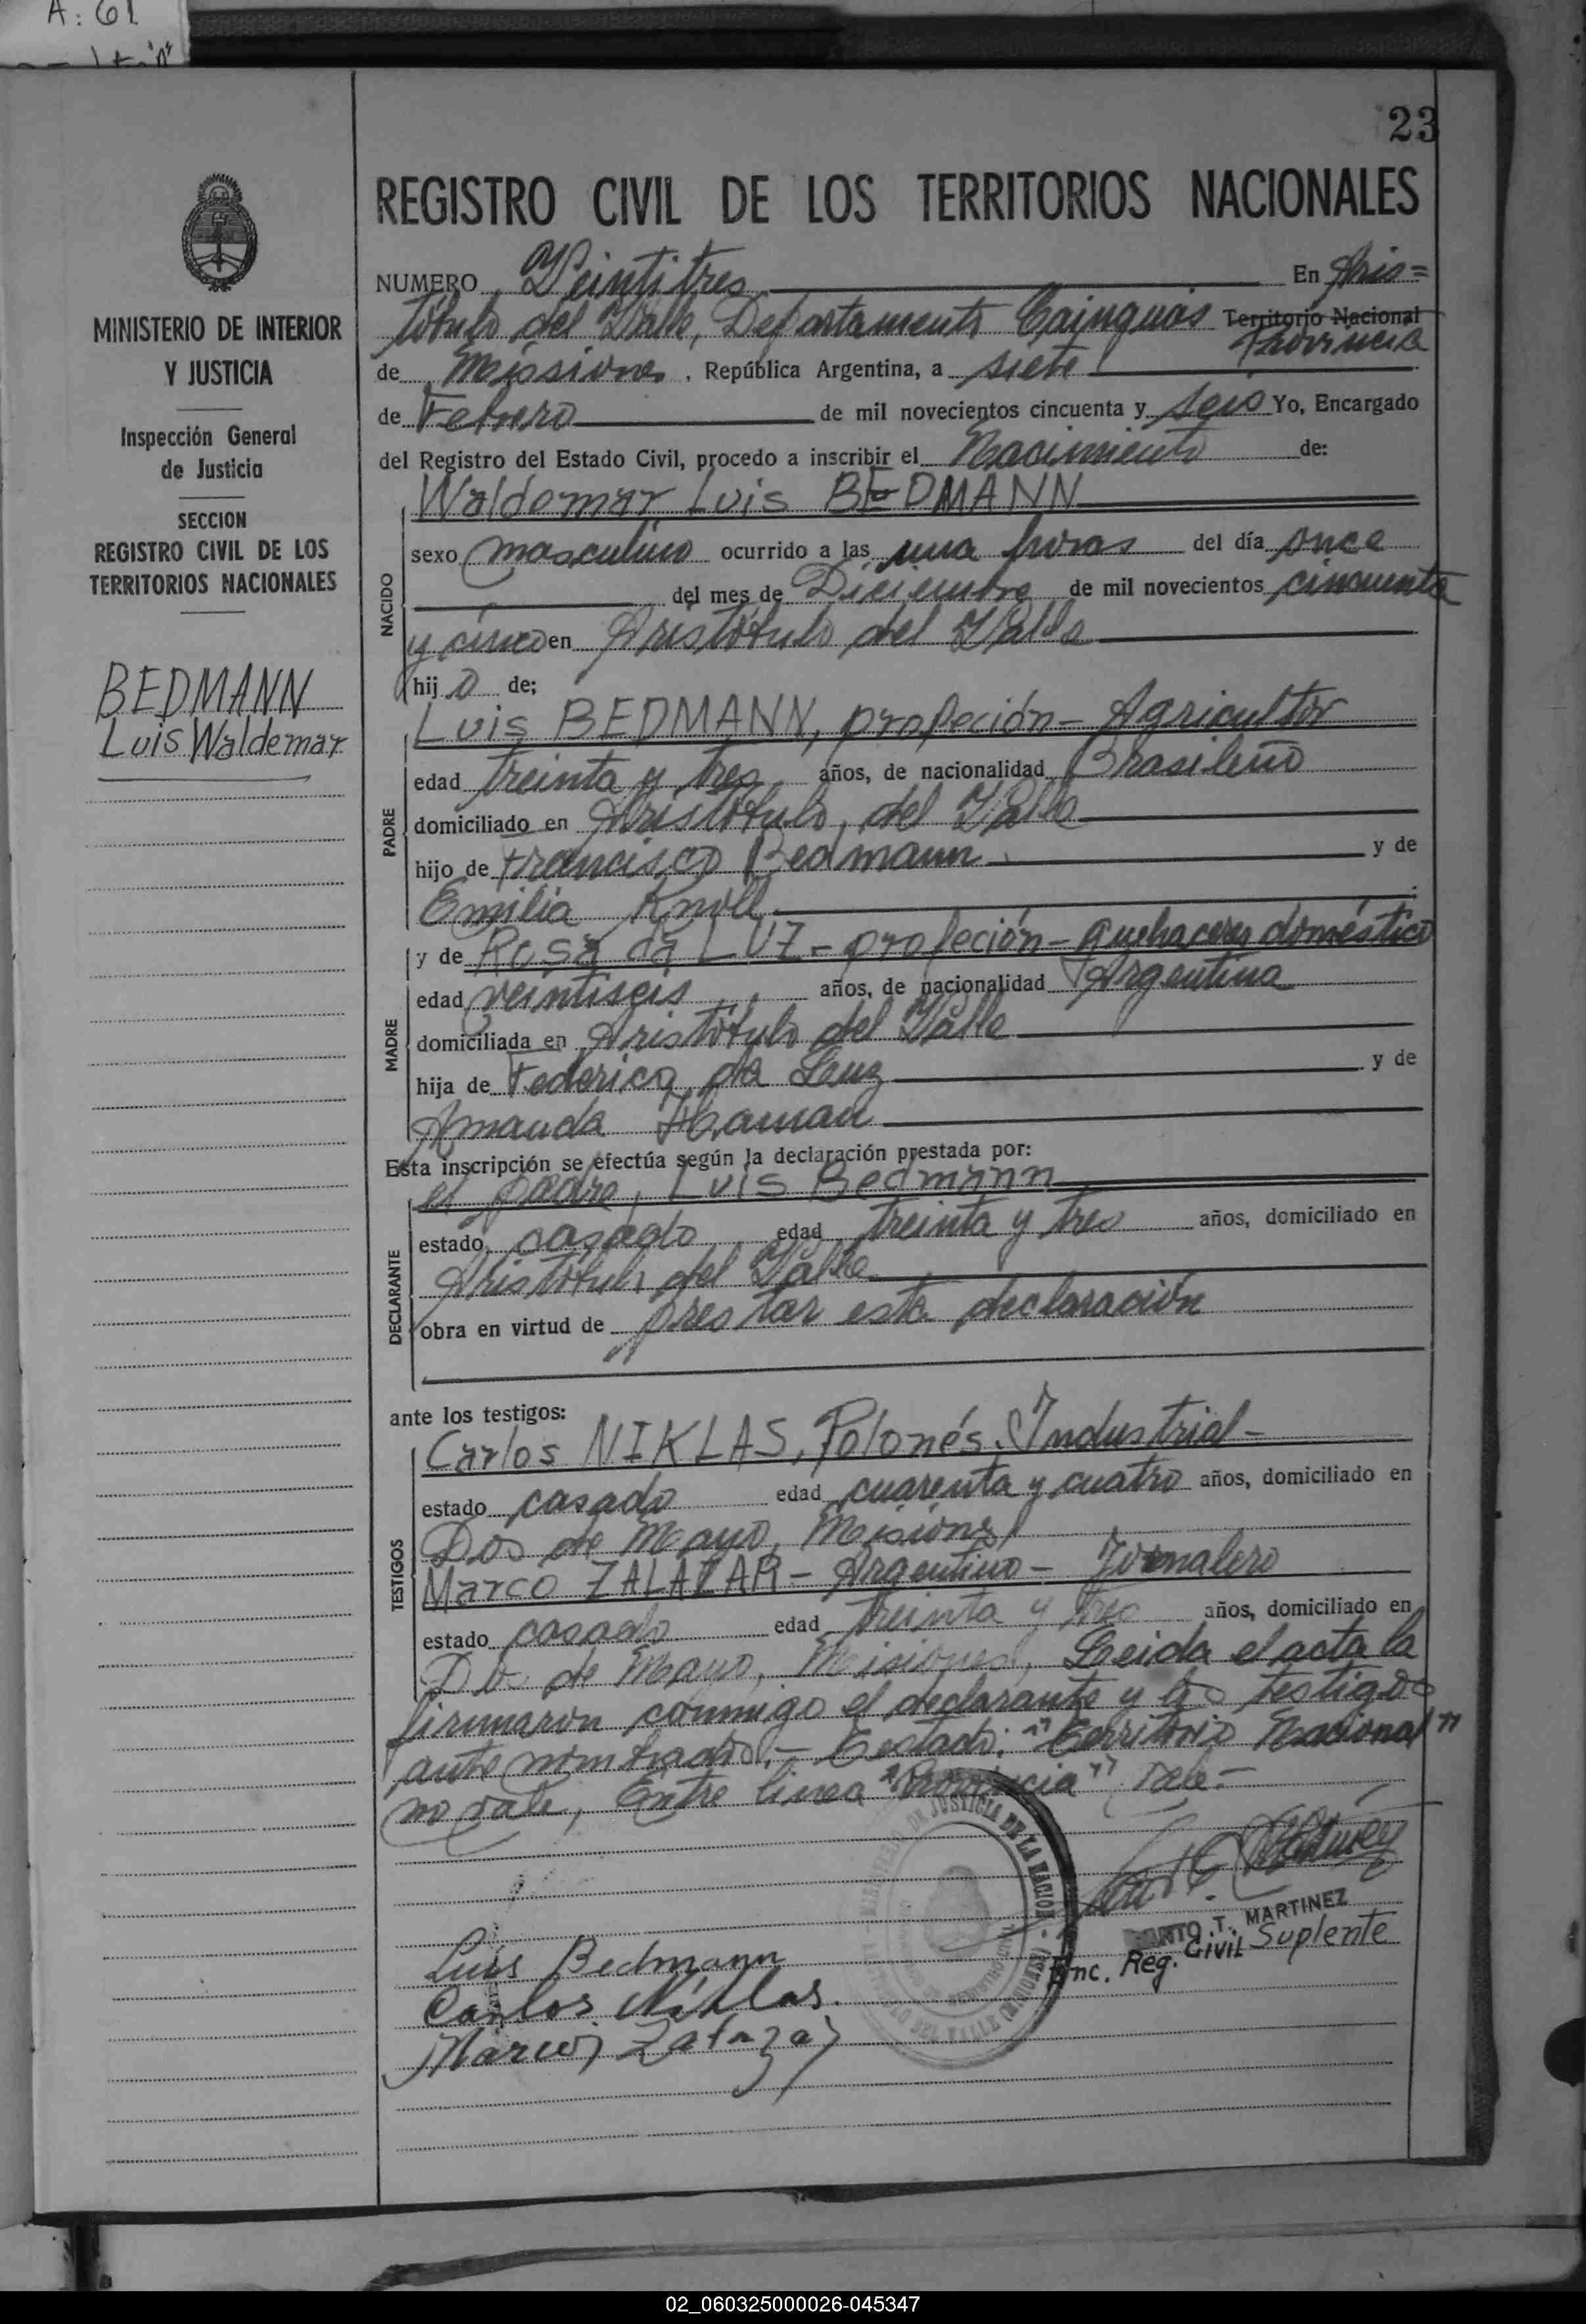 A: 61
23
MINISTERIO DE INTERIOR
Y JUSTICIA
Inspección General
de Justicia
SECCION
REGISTRO CIVIL DE LOS
TERRITORIOS NACIONALES
BEDMANN
Luis Waldemar
REGISTRO CIVIL DE LOS TERRITORIOS NACIONALES
NUMERO Veintitres En Aris=
tóbulo del Valle, Departamento Cainguás Territorio Nacional
Provincia
de Misiones, República Argentina, a siete
de Febrero de mil novecientos cincuenta y seis Yo, Encargado
del Registro del Estado Civil, procedo a inscribir el Nacimiento de:
NACIDO
Waldomar Luis BEDMANN
sexo masculino ocurrido a las una horas del día once
del mes de Diciembre de mil novecientos cincuenta
y cinco en Aristóbulo del Valle
hijo de;
PADRE
Luis BEDMANN, profeción- Agricultor
edad treinta y tres años, de nacionalidad Brasileño
domiciliado en Aristóbulo del Valle
hijo de Francisco Bedmann y de
Emilia Knoll
MADRE
y de Rosa da LUZ - profeción- quehaceres doméstico
edad veintiseis años, de nacionalidad Argentina
domiciliada en Aristóbulo del Valle
hija de Federico da Luz y de
Amanda Haman
Esta inscripción se efectúa según la declaración prestada por:
DECLARANTE
el padre, Luis Bedmann
estado casado edad treinta y tres años, domiciliado en
Aristóbulo del Valle
obra en virtud de prestar esta declaración
ante los testigos:
TESTIGOS
Carlos NIKLAS, Polonés. Industrial-
estado casado edad cuarenta y cuatro años, domiciliado en
Dos de Mayo, Misiones
Marco ZALAZAR- Argentino- Jornalero
estado casado edad treinta y tres años, domiciliado en
Dos de Mayo, Misiones, Leida el acta la
firmaron conmigo el declarante y los testigos
ante nombrados.- Testado: "Territorio Nacional"
no vale, Entre linea "Provincia" vale.-
MINISTERIO DE JUSTICIA DE LA NACION
T. MARTINEZ
Enc. Reg. Civil Suplente
Luis Bedmann
Carlos Niklas.
Marcos Zalazar
02_060325000026-045347